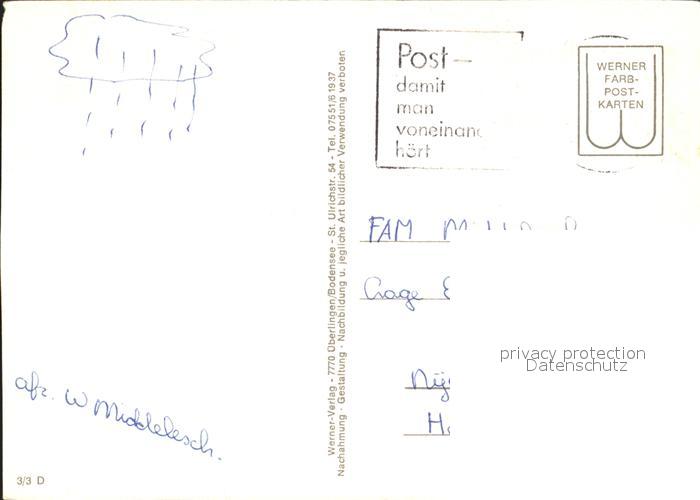 Post-
damit
man
voneinan
hört
WERNER
FARB-
POST-
KARTEN
Werner-Verlag - 7770 Überlingen/Bodensee - St. Ulrichstr. 54 - Tel. 07551/61937
Nachahmung - Gestaltung - Nachbildung u. jegliche Art bildlicher Verwendung verboten
FAM
privacy protection
Datenschutz
afz. W Middelesch.
3/3 D